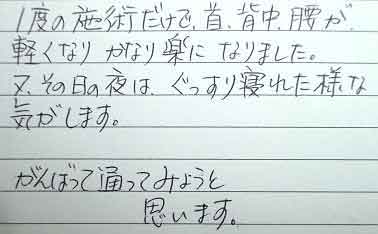 1度の施術だけで、首、背中、腰が、
軽くなり かなり楽に なりました。
又、その日の夜は、ぐっすり寝れた様な
気がします。
がんばって通ってみようと
思います。